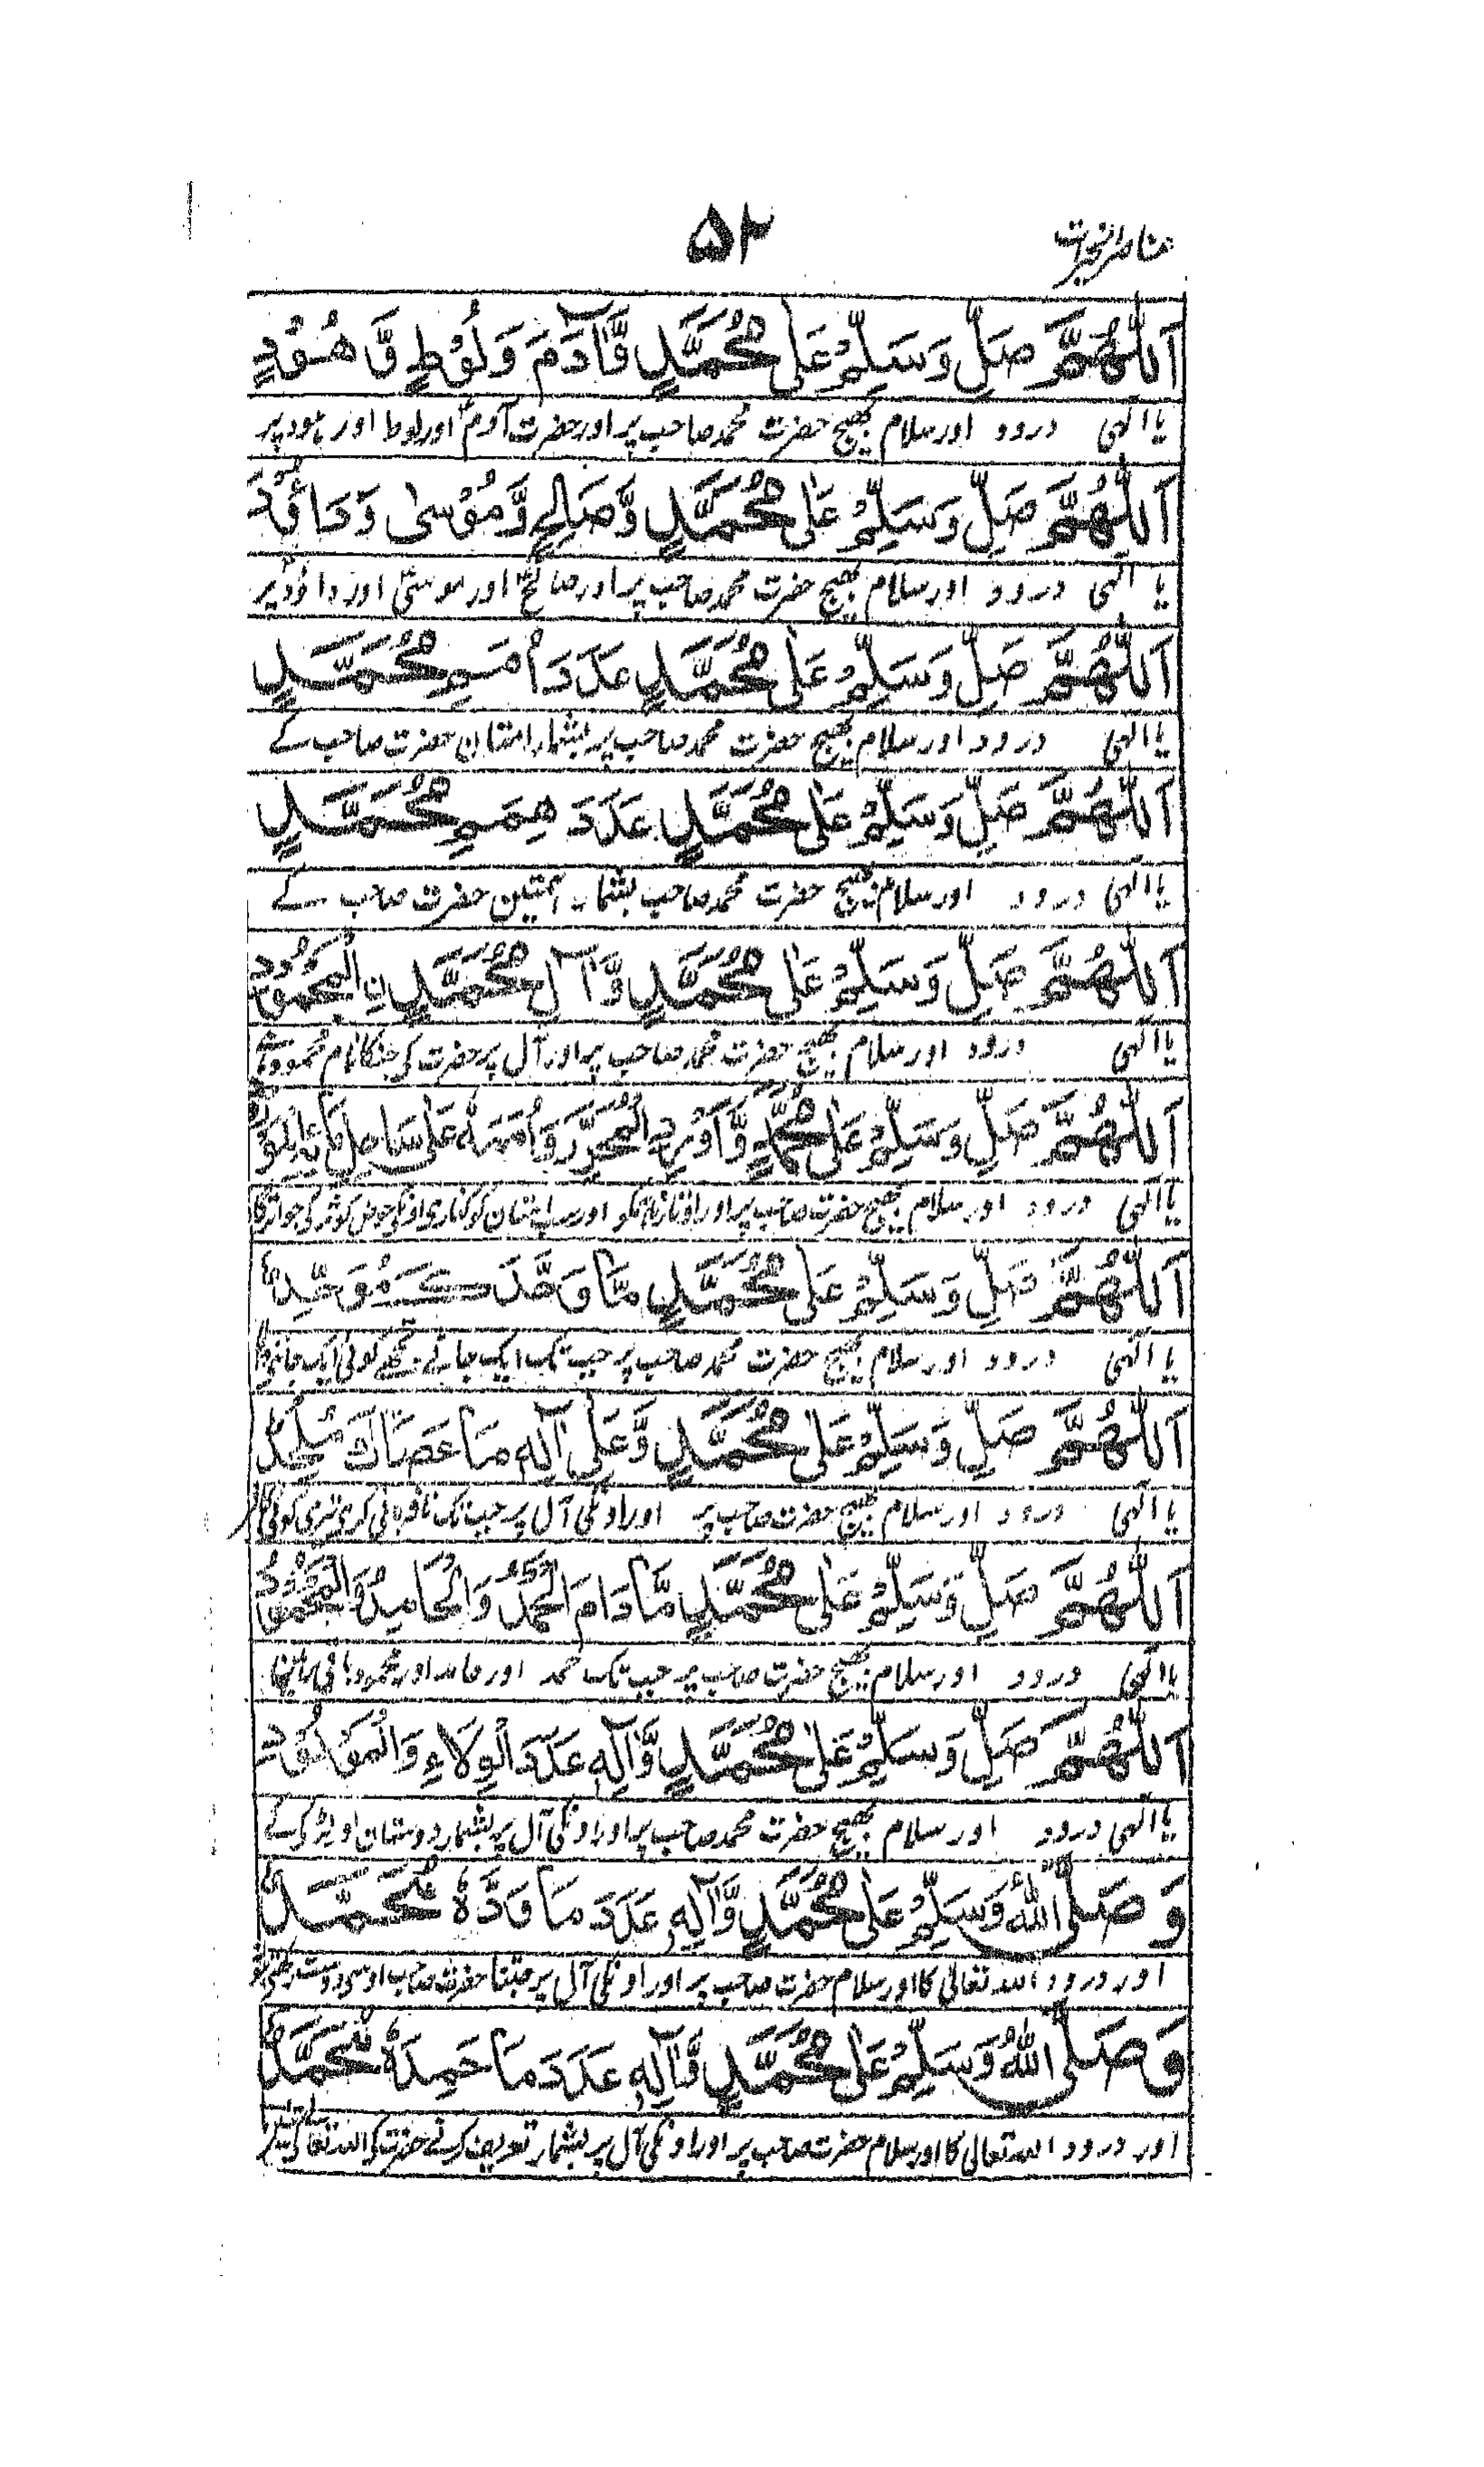 ۵۲
اَللّٰهُمَّ صَلِّ وَسَلِّمْ عَلٰى مُحَمَّدٍ وَّاٰدَمَ وَلُوْطٍ وَّهُوْدٍ
یا الٰہی درود اور سلام بھیج حضرت محمد صاحب پر اور حضرت آدمؑ اور لوط اور ہود پر
اَللّٰهُمَّ صَلِّ وَسَلِّمْ عَلٰى مُحَمَّدٍ وَّصَالِحٍ وَّمُوْسٰى وَدَاؤُدَ
یا الٰہی درود اور سلام بھیج حضرت محمد صاحب پر اور صالحؑ اور موسیٰؑ اور داؤدؑ پر
اَللّٰهُمَّ صَلِّ وَسَلِّمْ عَلٰى مُحَمَّدٍ عَدَدَ اُمَمِ مُحَمَّدٍ
یا الٰہی درود اور سلام بھیج حضرت محمد صاحب پر بشمار امتان حضرت صاحب کے
اَللّٰهُمَّ صَلِّ وَسَلِّمْ عَلٰى مُحَمَّدٍ عَدَدَ هِمَمِ مُحَمَّدٍ
یا الٰہی درود اور سلام بھیج حضرت محمد صاحب بشمار ہمتین حضرت صاحب کے
اَللّٰهُمَّ صَلِّ وَسَلِّمْ عَلٰى مُحَمَّدٍ وَّاٰلِ مُحَمَّدِ نِ الْمَحْمُوْدِ
یا الٰہی درود اور سلام بھیج حضرت محمد صاحب پر اور آل پر حضرت کی جنکا نام محمود
اَللّٰهُمَّ صَلِّ وَسَلِّمْ عَلٰى مُحَمَّدٍ وَّاَوْرِدِ الْمُحَرَّرَ وَاُمَمَهٗ عَلٰى سَاحِلِ
یا الٰہی درود اور سلام بھیج حضرت صاحب پر اور اور سب امتان کو کناری اونکی حوض کوثر کی
اَللّٰهُمَّ صَلِّ وَسَلِّمْ عَلٰى مُحَمَّدٍ مَّا وَحَّدَكَ مُوَحِّدٌ
یا الٰہی درود اور سلام بھیج حضرت محمد صاحب پر جب تک ایک جانے تجھے کوئی ایک جاننی والا
اَللّٰهُمَّ صَلِّ وَسَلِّمْ عَلٰى مُحَمَّدٍ وَّعَلٰى اٰلِهٖ مَا عَصَاكَ مُلْحِدٌ
یا الٰہی درود اور سلام بھیج حضرت صاحب پر اور اونکی آل پر جب تک نافرمانی کری تیری کوئی
اَللّٰهُمَّ صَلِّ وَسَلِّمْ عَلٰى مُحَمَّدٍ مَّا دَامَ الْحَمْدُ وَالْحَامِدُ وَالْمَحْمُوْدُ
یا الٰہی درود اور سلام بھیج حضرت صاحب پر جب تک حمد اور حامد اور محمود باقی
اَللّٰهُمَّ صَلِّ وَسَلِّمْ عَلٰى مُحَمَّدٍ وَّاٰلِهٖ عَدَدَ الْوِلَاءِ وَالْمَوْلُوْدِ
یا الٰہی درود اور سلام بھیج حضرت محمد صاحب پر اور اونکی آل پر بشمار دوستان اور لڑکی کے
وَصَلَّى اللّٰهُ وَسَلِّمْ عَلٰى مُحَمَّدٍ وَّاٰلِهٖ عَدَدَ مَا وَدَّهٗ مُحَمَّدٌ
اور درود اللہ تعالیٰ کا اور سلام حضرت صاحب پر اور اونکی آل پر جتنا حضرت صاحب اوسی دوست
وَصَلَّى اللّٰهُ وَسَلِّمْ عَلٰى مُحَمَّدٍ وَّاٰلِهٖ عَدَدَ مَا حَمِدَهٗ مُحَمَّدٌ
اور درود اللہ تعالیٰ کا اور سلام حضرت صاحب پر اور اونکی آل پر بشمار تعریف کرنے حضرت کی اللہ تعالیٰ کی